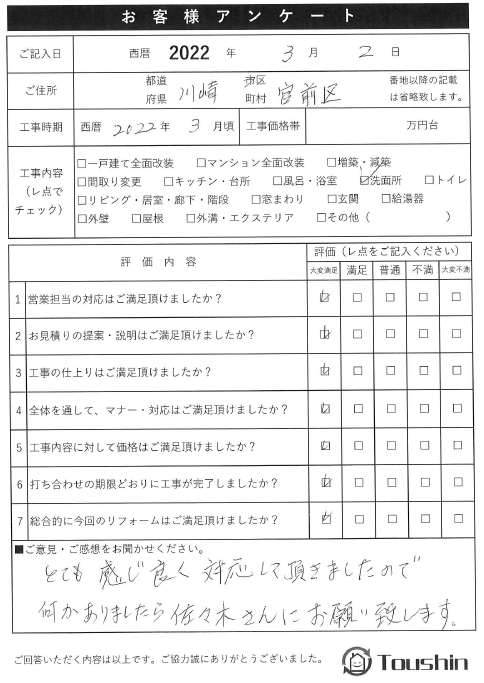 お客様アンケート
ご記入日 西暦 2022 年 3 月 2 日
ご住所 都道府県 川崎 市区町村 宮前区 番地以降の記載は省略致します。
工事時期 西暦 2022 年 3 月頃 工事価格帯 万円台
工事内容(レ点でチェック)
□一戸建て全面改装 □マンション全面改装 □増築・減築
□間取り変更 □キッチン・台所 □風呂・浴室 ☑洗面所 □トイレ
□リビング・居室・廊下・階段 □窓まわり □玄関 □給湯器
□外壁 □屋根 □外溝・エクステリア □その他( )
評価内容 評価(レ点をご記入ください)
大変満足 満足 普通 不満 大変不満
1 営業担当の対応はご満足頂けましたか? ☑ □ □ □ □
2 お見積りの提案・説明はご満足頂けましたか? ☑ □ □ □ □
3 工事の仕上りはご満足頂けましたか? ☑ □ □ □ □
4 全体を通して、マナー・対応はご満足頂けましたか? ☑ □ □ □ □
5 工事内容に対して価格はご満足頂けましたか? ☑ □ □ □ □
6 打ち合わせの期限どおりに工事が完了しましたか? ☑ □ □ □ □
7 総合的に今回のリフォームはご満足頂けましたか? ☑ □ □ □ □
■ご意見・ご感想をお聞かせください。
とても感じ良く対応して頂きましたので
何かありましたら佐々木さんにお願い致します。
ご回答いただく内容は以上です。ご協力誠にありがとうございました。
Toushin